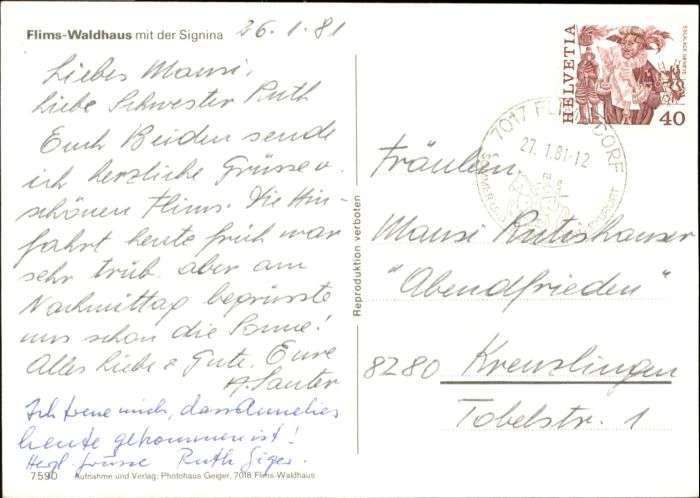 Flims-Waldhaus mit der Signina 26.1.81
Liebes Mausi,
Liebe Schwester Ruth
Euch Beiden sende
ich herzliche Grüsse v.
schönen Flims. Die Hin-
fahrt heute früh war
sehr trüb aber am
Nachmittag begrüsste
uns schon die Sonne!
Alles Liebe & Gute. Eure
A. Sauter
Ich freue mich, dass Annelies
heute gekommen ist!
Herzl. Grüsse Ruth Giger.
7590 Aufnahme und Verlag: Photohaus Geiger, 7018 Flims-Waldhaus
Reproduktion verboten
HELVETIA
40
7017 FLIMS DORF
27.1.81-12
Fräulein,
Mausi Rutishauser
"Abendfrieden"
8280 Kreuzlingen
Tobelstr. 1